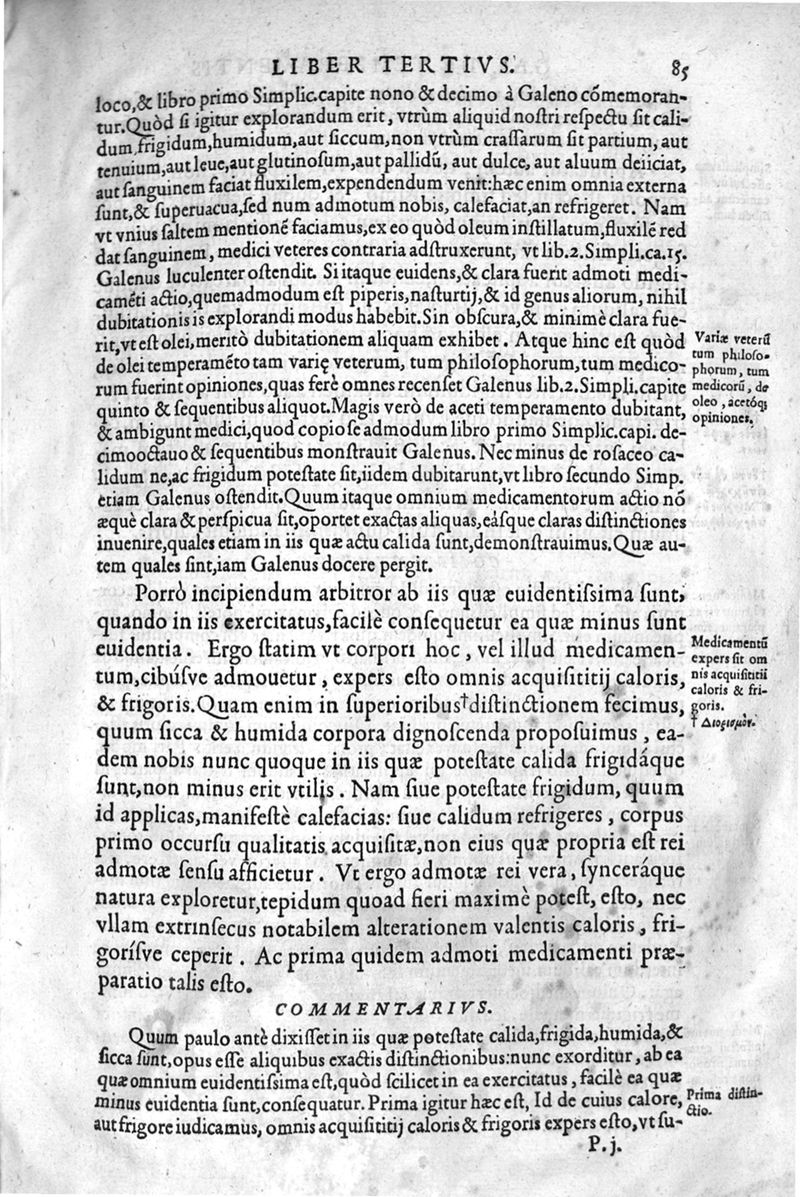 LIBER TERTIVS. 85
loco,& libro primo Simplic.capite nono & decimo à Galeno cõmemoran-
tur.Quòd si igitur explorandum erit, vtrùm aliquid nostri respectu sit cali-
dum,frigidum,humidum,aut siccum,non vtrùm crassarum sit partium, aut
tenuium,aut leue,aut glutinosum,aut pallidũ, aut dulce, aut aluum deiiciat,
aut sanguinem faciat fluxilem,expendendum venit:hæc enim omnia externa
sunt,& superuacua,sed num admotum nobis, calefaciat,an refrigeret. Nam
vt vnius saltem mentionẽ faciamus,ex eo quòd oleum instillatum,fluxilẽ red
dat sanguinem, medici veteres contraria adstruxerunt, vt lib.2.Simpli.ca.15.
Galenus luculenter ostendit. Si itaque euidens,& clara fuerit admoti medi-
camẽti actio,quemadmodum est piperis,nasturtij,& id genus aliorum, nihil
dubitationis is explorandi modus habebit.Sin obscura,& minimè clara fue-
rit,vt est olei,meritò dubitationem aliquam exhibet. Atque hinc est quòd
de olei temperamẽto tam varię veterum, tum philosophorum,tum medico-
rum fuerint opiniones,quas ferè omnes recenset Galenus lib.2.Simpli.capite
quinto & sequentibus aliquot.Magis verò de aceti temperamento dubitant,
& ambigunt medici,quod copiose admodum libro primo Simplic.capi. de-
cimooctauo & sequentibus monstrauit Galenus. Nec minus de rosaceo ca-
lidum ne,ac frigidum potestate sit,iidem dubitarunt,vt libro secundo Simp.
etiam Galenus ostendit.Quum itaque omnium medicamentorum actio nõ
æquè clara & perspicua sit,oportet exactas aliquas,eásque claras distinctiones
inuenire,quales etiam in iis quæ actu calida sunt,demonstrauimus.Quæ au-
tem quales sint,iam Galenus docere pergit.
Variæ veterũ
tum philoso-
phorum, tum
medicorũ, de
oleo, acetóq;
opiniones.
Porrò incipiendum arbitror ab iis quæ euidentissima sunt,
quando in iis exercitatus,facilè consequetur ea quæ minus sunt
euidentia. Ergo statim vt corpori hoc, vel illud medicamen-
tum,cibúsve admouetur, expers esto omnis acquisititij caloris,
& frigoris.Quam enim in superioribus†distinctionem fecimus,
quum sicca & humida corpora dignoscenda proposuimus, ea-
dem nobis nunc quoque in iis quæ potestate calida frigidáque
sunt,non minus erit vtilis. Nam siue potestate frigidum, quum
id applicas,manifestè calefacias: siue calidum refrigeres, corpus
primo occursu qualitatis acquisitæ,non eius quæ propria est rei
admotæ sensu afficietur. Vt ergo admotæ rei vera, synceráque
natura exploretur,tepidum quoad fieri maximè potest, esto, nec
vllam extrinsecus notabilem alterationem valentis caloris, fri-
gorísve ceperit. Ac prima quidem admoti medicamenti præ-
paratio talis esto.
Medicamentũ
expers sit om
nis acquisititii
caloris & fri-
goris.
† Διορισμόν.
COMMENTARIVS.
Quum paulo antè dixisset in iis quæ potestate calida,frigida,humida,&
sicca sunt,opus esse aliquibus exactis distinctionibus:nunc exorditur, ab ea
quæ omnium euidentissima est,quòd scilicet in ea exercitatus, facilè ea quæ
minus euidentia sunt,consequatur. Prima igitur hæc est, Id de cuius calore,
aut frigore iudicamus, omnis acquisititij caloris & frigoris expers esto,vt su-
Prima distin-
ctio.
P.j.